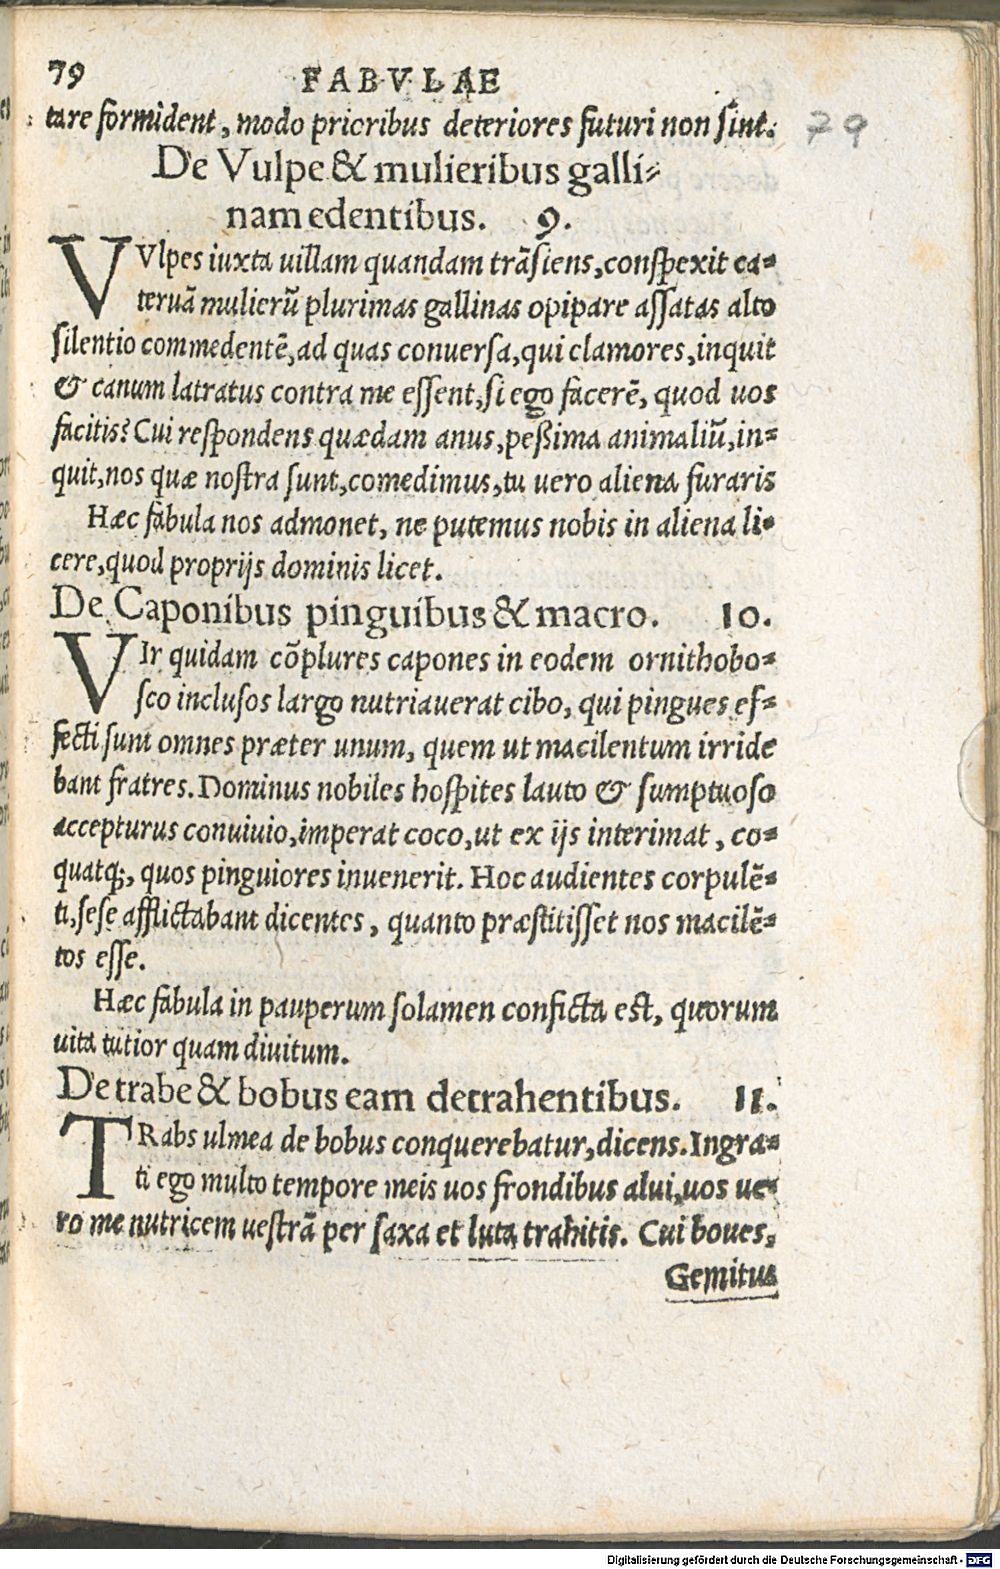 79 FABVLAE
tare formident, modo prioribus deteriores futuri non sint.
79
De Vulpe & mulieribus galli-
nam edentibus. 9.
VVlpes iuxta uillam quandam trāsiens, conspexit ca-
teruā mulierū plurimas gallinas opipare assatas alto
silentio commedentē, ad quas conuersa, qui clamores, inquit
& canum latratus contra me essent, si ego facerē, quod uos
facitis? Cui respondens quædam anus, peßima animaliū, in-
quit, nos quæ nostra sunt, comedimus, tu uero aliena furaris
Hæc fabula nos admonet, ne putemus nobis in aliena li-
cere, quod proprijs dominis licet.
De Caponibus pinguibus & macro. 10.
VIr quidam cōplures capones in eodem ornithobo-
sco inclusos largo nutriauerat cibo, qui pingues ef-
fecti sunt omnes præter unum, quem ut macilentum irride
bant fratres. Dominus nobiles hospites lauto & sumptuoso
accepturus conuiuio, imperat coco, ut ex ijs interimat, co-
quatq;, quos pinguiores inuenerit. Hoc audientes corpulē-
ti, sese afflictabant dicentes, quanto præstitisset nos macilē-
tos esse.
Hæc fabula in pauperum solamen conficta est, quorum
uita tutior quam diuitum.
De trabe & bobus eam detrahentibus. 11.
TRabs ulmea de bobus conquerebatur, dicens. Ingra-
ti ego multo tempore meis uos frondibus alui, uos ue-
ro me nutricem uestrā per saxa et luta trahitis. Cui boues,
Gemitus
Digitalisierung gefördert durch die Deutsche Forschungsgemeinschaft - DFG